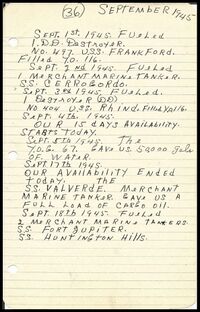 (36) SEPTEMBER 1945
SEPT. 1ST. 1945. FUELED
1. D.D. DESTROYER.
NO. 497. U.S.S. FRANKFORD.
FILLED Y.O. 116.
SEPT. 2ND 1945. FUELED
1 MERCHANT MARINE TANKER.
SS. CERROGORDO.
SEPT. 3RD 1945. FUELED.
1 DESTROYER (DD)
NO. 404 U.S.S. RHIND. FILLED YO116.
SEPT. 4TH. 1945.
OUR 15 DAYS AVAILABILITY.
STARTS TODAY.
SEPT. 5TH 1945. THE
Y.O.G. 67. GAVE US 52000 GALS
OF WATER.
SEPT. 17TH 1945.
OUR AVAILABILITY ENDED
TODAY. THE
SS. VALVERDE. MERCHANT
MARINE TANKER GAVE US A
FULL LOAD OF CARGO OIL.
SEPT. 18TH 1945. FUELED
2 MERCHANT MARINE TANKERS.
SS. FORT JUPITER.
SS. HUNTINGTON HILLS.